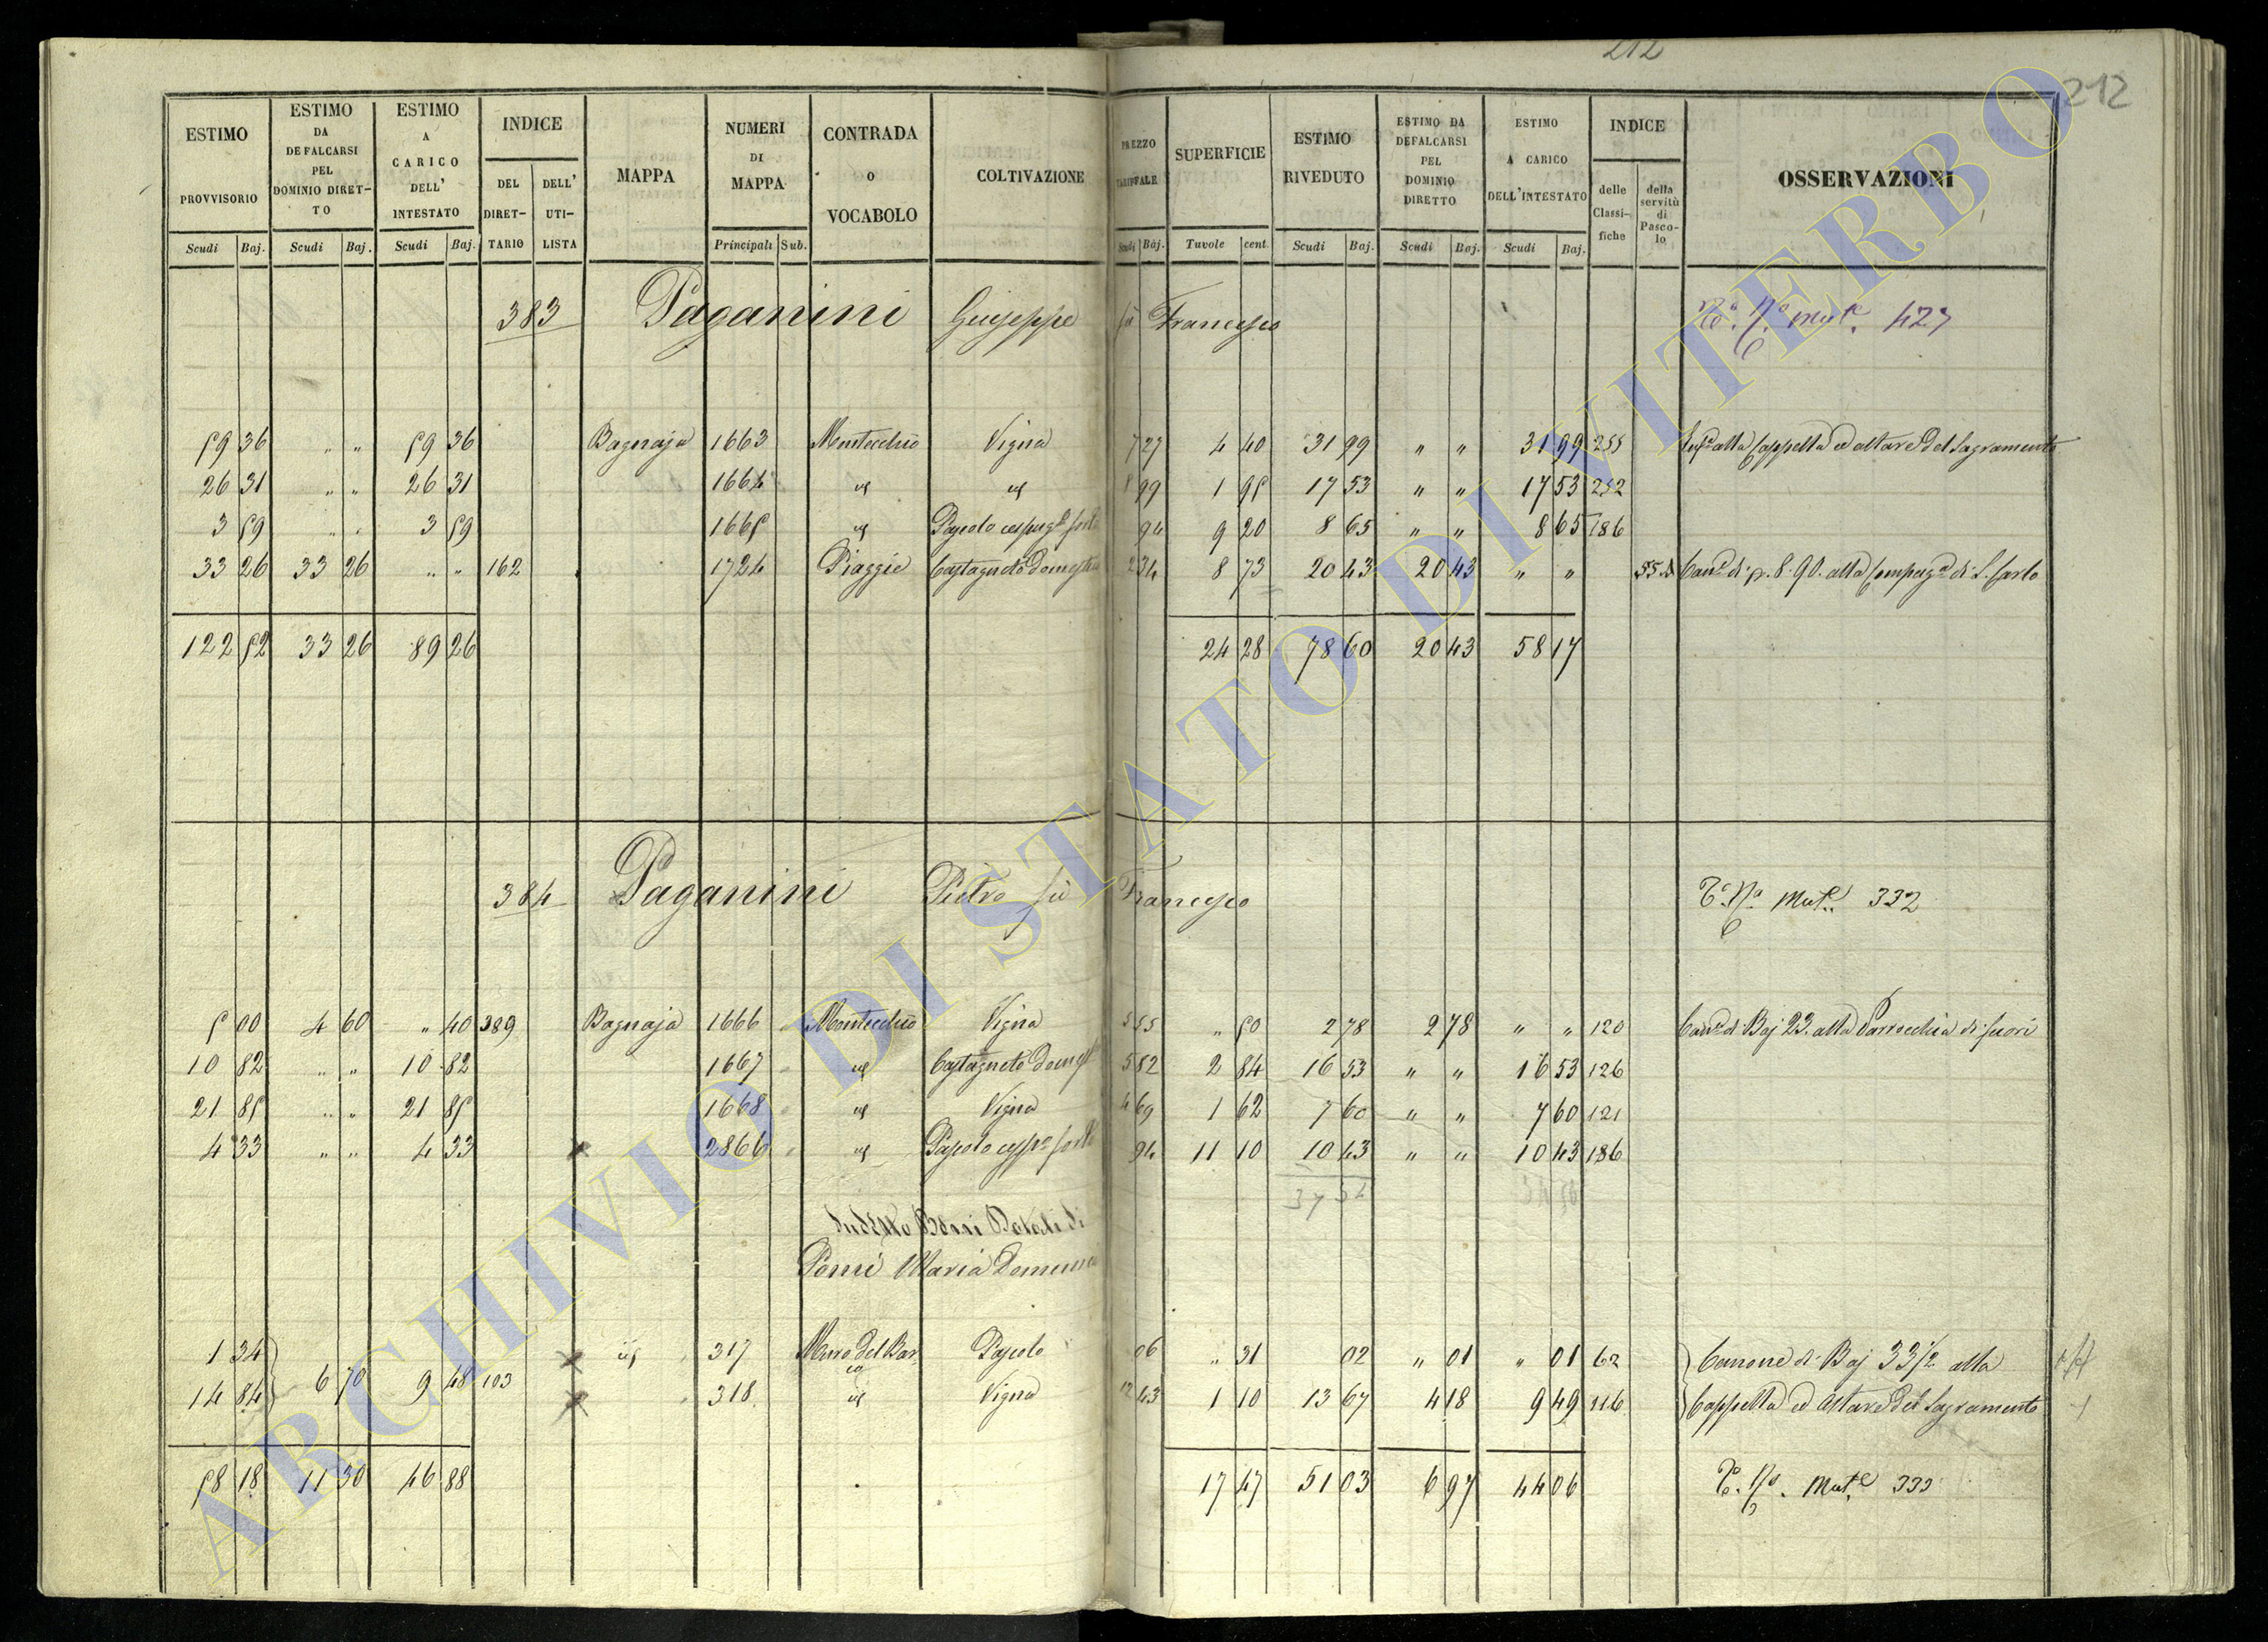 212
212
ESTIMO PROVVISORIO Scudi Baj.
ESTIMO DA DEFALCARSI PEL DOMINIO DIRET-TO Scudi Baj.
ESTIMO A CARICO DELL' INTESTATO Scudi Baj.
INDICE DEL DIRET-TARIO DELL' UTI-LISTA
MAPPA
NUMERI DI MAPPA Principali Sub.
CONTRADA O VOCABOLO
COLTIVAZIONE
PREZZO TARIFFALE Scudi Baj.
SUPERFICIE Tavole cent.
ESTIMO RIVEDUTO Scudi Baj.
ESTIMO DA DEFALCARSI PEL DOMINIO DIRETTO Scudi Baj.
ESTIMO A CARICO DELL'INTESTATO Scudi Baj.
INDICE delle Classi-fiche della servitù di Pasco-lo
OSSERVAZIONI
383 Paganini Giuseppe fù Francesco 427
59 36 " " 59 36 Bagnaja 1663 Montecchio Vigna 7 27 4 40 31 99 " " 31 99 255 alla Cappella ed altare del Sagramento
26 31 " " 26 31 1664 id id 8 99 1 95 17 53 " " 17 53 252
3 59 " " 3 59 1665 id Pascolo cespug forte 94 9 20 8 65 " " 8 65 186
33 26 33 26 " " 162 1724 Piaggie Castagneto domestico 2 34 8 73 20 43 20 43 " " 55 Can.e di 8.90. alla Compag.a di S. Carlo
122 52 33 26 89 26 24 28 78 60 20 43 58 17
384 Paganini Pietro fù Francesco Mut. 332
5 00 4 60 " 40 389 Bagnaja 1666 Montecchio Vigna 5 55 " 50 2 78 2 78 " " 120 Can.e di Baj 23. alla Parrocchia di fuori
10 82 " " 10 82 1667 id Castagneto domest 5 82 2 84 16 53 " " 16 53 126
21 85 " " 21 85 1668 id Vigna 4 69 1 62 7 60 " " 7 60 121
4 33 " " 4 33 2866 id Pascolo cesp.o forte 94 11 10 10 43 " " 10 43 186
Beni Dotali di
Maria Domenica
1 34 id 317 Muro del Bar co Pascolo 06 " 31 02 " 01 " 01 62 Canone di Baj 33 1/2 alla
14 84 6 70 9 48 103 318 id Vigna 12 43 1 10 13 67 4 18 9 49 116 Cappella ed Altare del Sagramento
58 18 11 30 46 88 17 47 51 03 6 97 44 06 Mut.e 333
ARCHIVIO DI STATO DI VITERBO